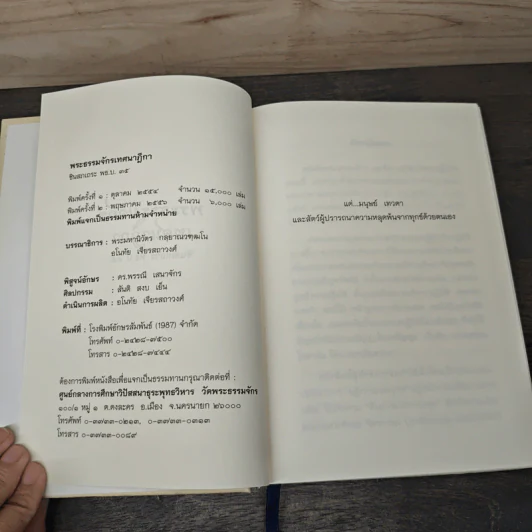 พระธรรมจักรเทศนาฎีกา
ชินสกเถระ พธ.บ. ๓๕
พิมพ์ครั้งที่ ๑ : ตุลาคม ๒๕๕๔ จำนวน ๑๕,๐๐๐ เล่ม
พิมพ์ครั้งที่ ๒ : พฤษภาคม ๒๕๕๖ จำนวน ๖,๐๐๐ เล่ม
พิมพ์แจกเป็นธรรมทานห้ามจำหน่าย
บรรณาธิการ : พระมหานิวัตร กลฺยาณวฑฺฒโน
อโนทัย เจียรสถาวงศ์
พิสูจน์อักษร : ดร.พรรณี เสนาจักร
ศิลปกรรม : สันติ สงบ เย็น
ดำเนินการผลิต : อโนทัย เจียรสถาวงศ์
พิมพ์ที่ : โรงพิมพ์อักษรสัมพันธ์ (1987) จำกัด
โทรศัพท์ ๐-๒๔๒๘-๗๕๐๐
โทรสาร ๐-๒๔๒๘-๗๔๔๔
ต้องการพิมพ์หนังสือเพื่อแจกเป็นธรรมทานกรุณาติดต่อที่ :
ศูนย์กลางการศึกษาวิปัสสนาธุระพุทธวิหาร วัดพระธรรมจักร
๑๐๐/๑ หมู่ ๑ ต.ดงละคร อ.เมือง จ.นครนายก ๒๖๐๐๐
โทรศัพท์ ๐-๓๗๓๓-๐๒๑๓, ๐-๓๗๓๓-๐๓๑๓
โทรสาร ๐-๓๗๓๓-๐๐๘๙
แด่...มนุษย์ เทวดา
และสัตว์ผู้ปรารถนาความหลุดพ้นจากทุกข์ด้วยตนเอง